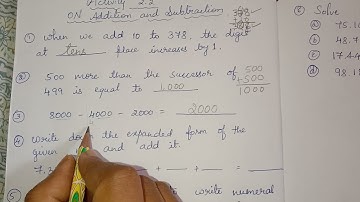 Activity 2.2
ON Addition and Subtraction
① When we add 10 to 378, the digit
at tens place increases by 1.
② 500 more than the successor of
499 is equal to 1,000
500
+500
1000
③ 8000 - 4000 - 2000 = 2000
④ Write down the expanded form of the
given and add it.
+ + + =
write numeral
③ Solve
a) 75.10
b) 48.7
c) 174
d) 98.1